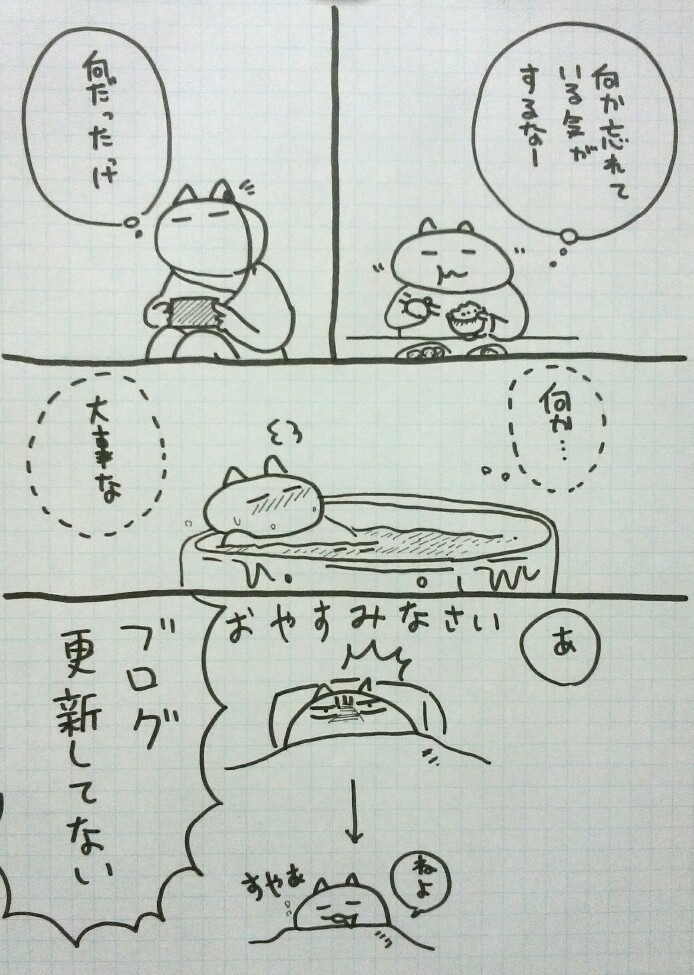 何か忘れて
いる気が
するなー
何だったっけ
何か…
大事な
あ
おやすみなさい
ブログ
更新してない
ねよ
すやあ